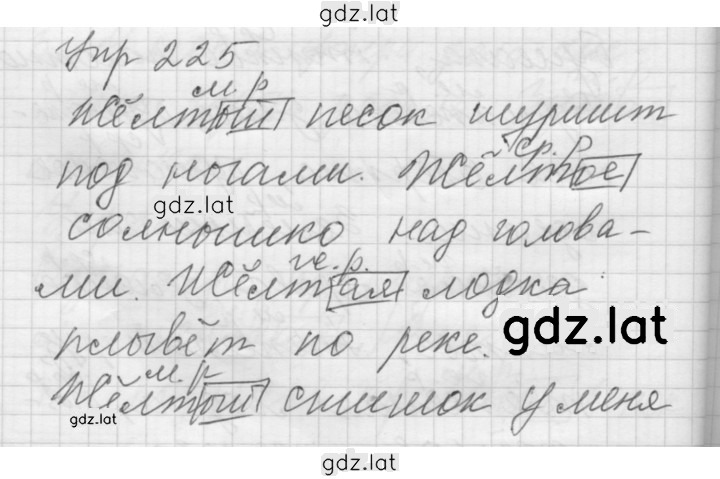 gdz.lat
Упр 225
м. р
Жёлтый песок шуршит
ср. р
под ногами. Жёлтое
gdz.lat
солнышко над голова-
же. р.
ми. Жёлтая лодка
gdz.lat
плывёт по реке.
м. р
Жёлтый снишок у меня
gdz.lat
gdz.lat